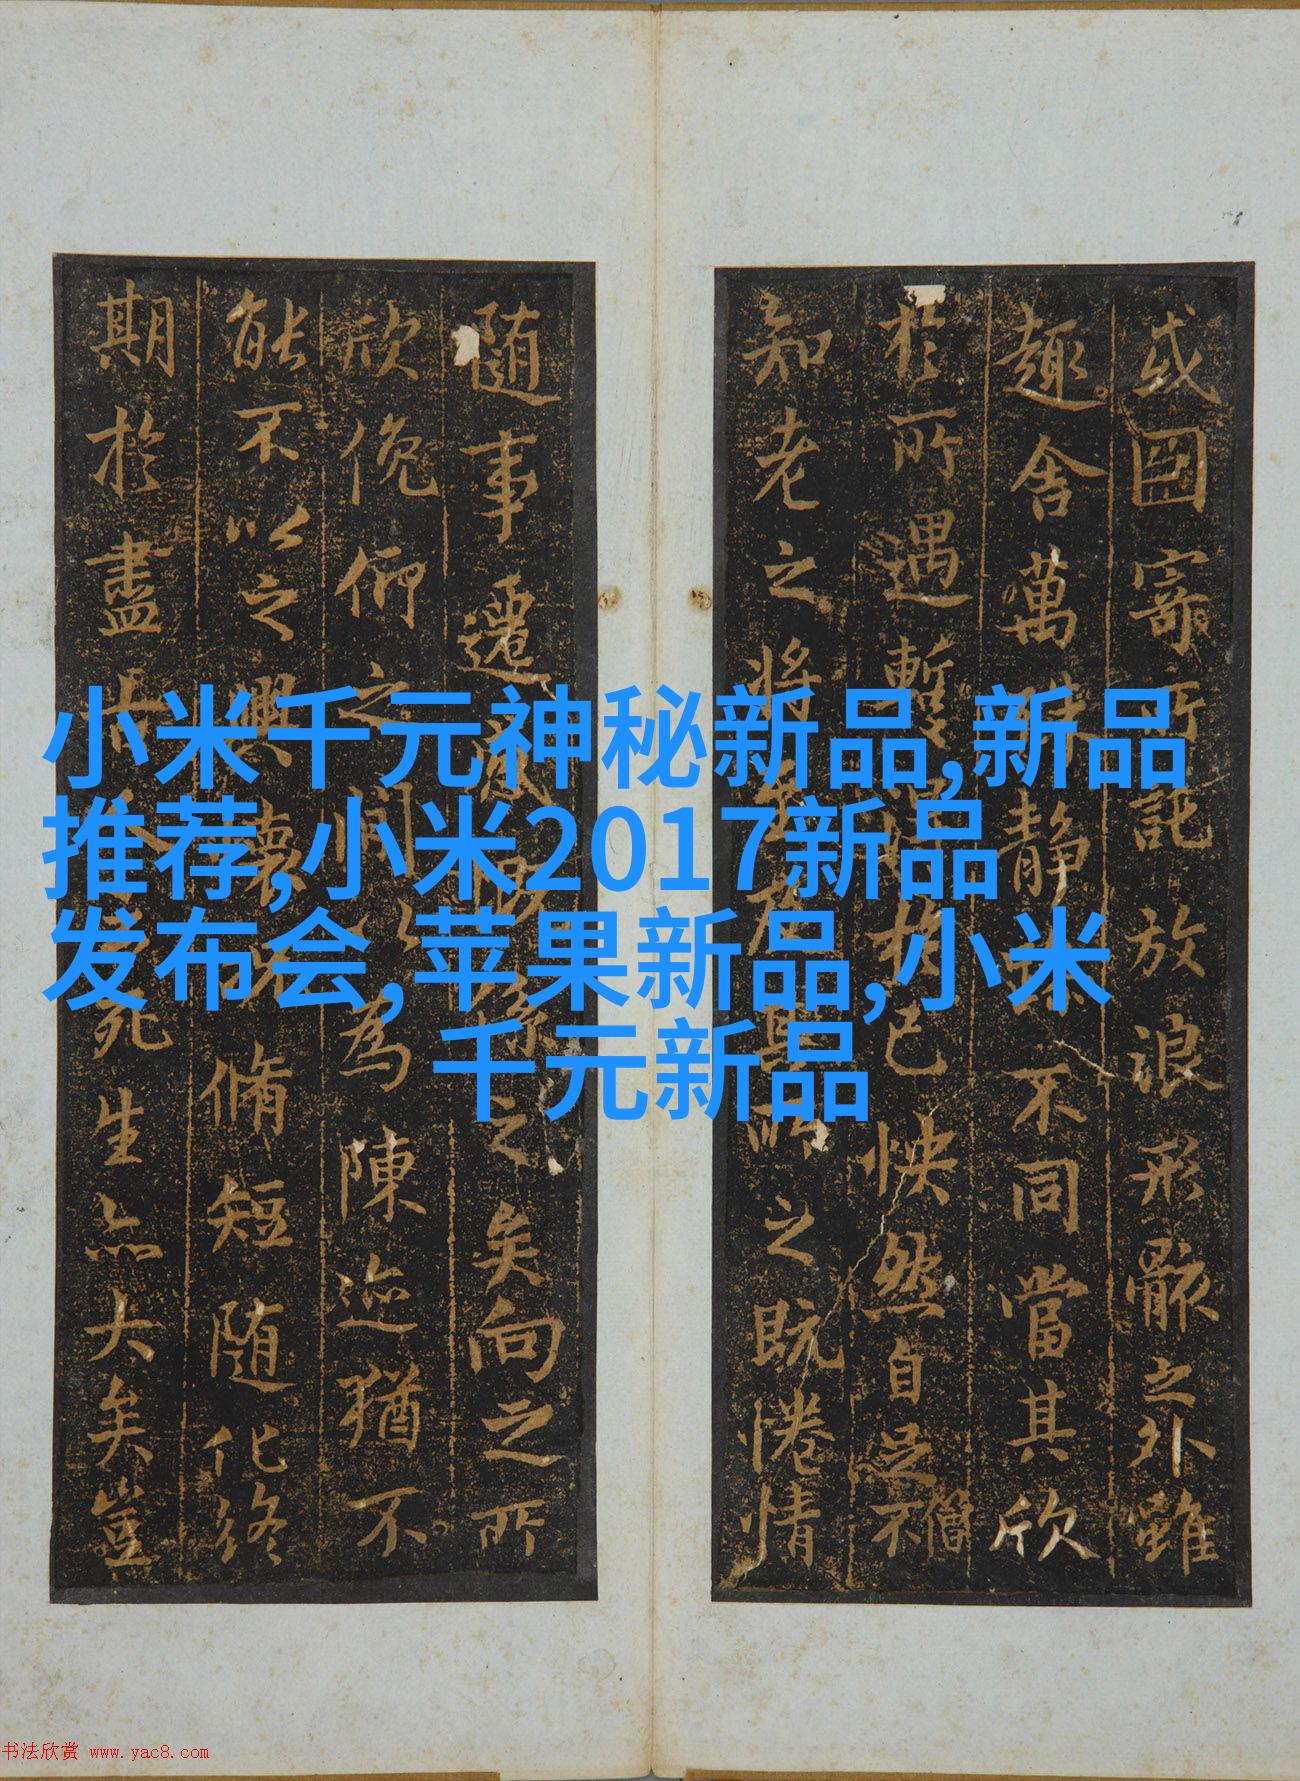 小米千元神秘新品,新品
推荐,小米2017新品
发布会,苹果新品,小米
千元新品
或因寄所託放浪形骸之外雖
趣舍萬殊静躁不同當其欣
於所遇暫得於己怏然自足不
僧
知老之將至及其所之既惓情
隨事遷感慨係之矣向之所
欣俛仰之閒以為陳迹猶不
能不以之興懷況脩短隨化終
期於盡古人云死生亦大矣豈
书法欣赏 www.yac8.com